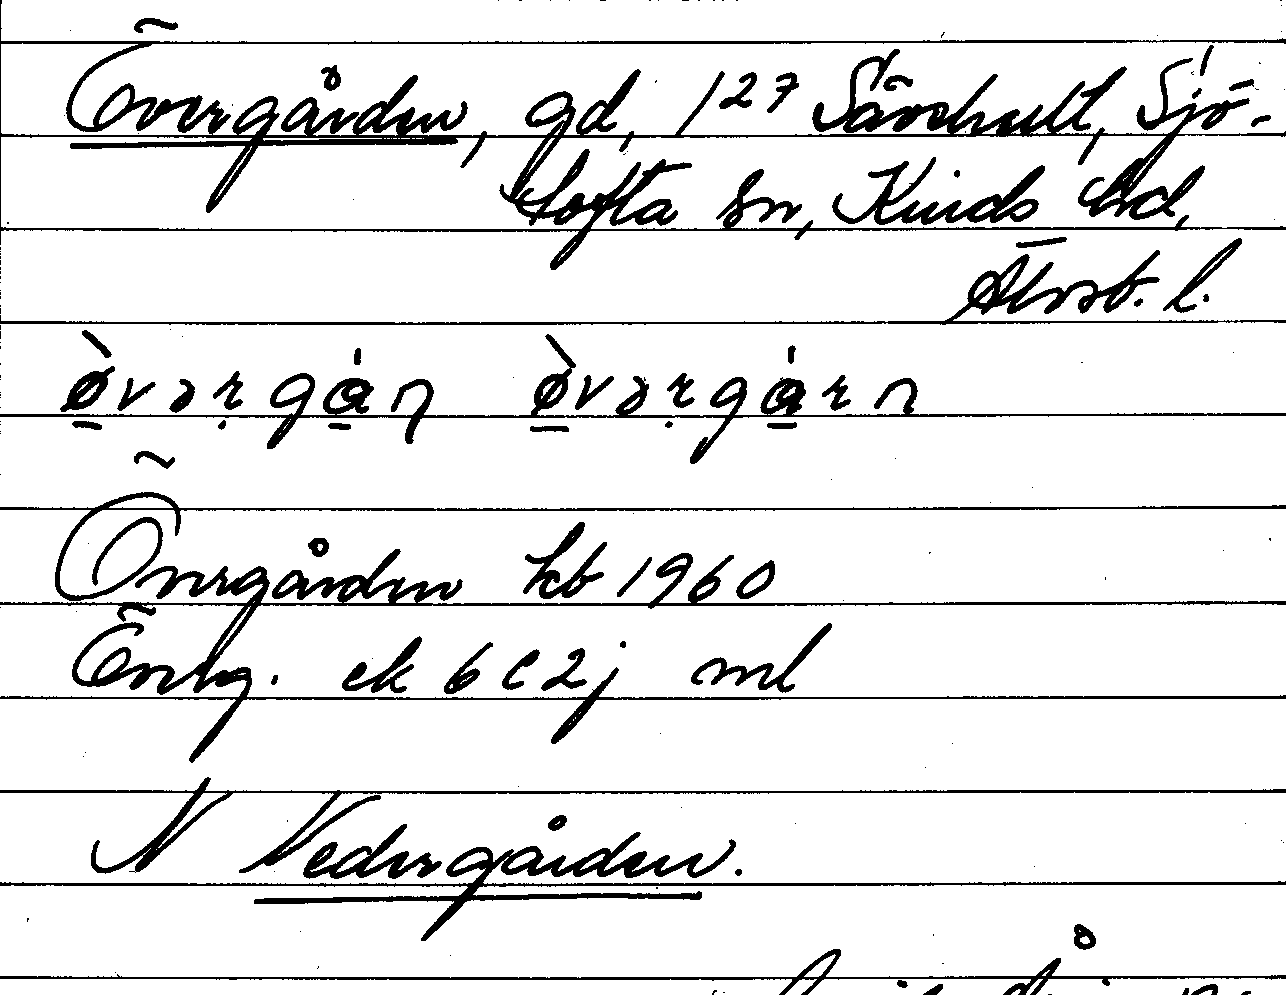 Övergården, gd, 1²⁷ Sävshult, Sjö-
tofta sn, Kinds hd,
Älvsb. l.
ø̀vərgán ø̀vərgárn
Övergården kb 1960
Överg. ek 6C2j ml
N Nedergården.